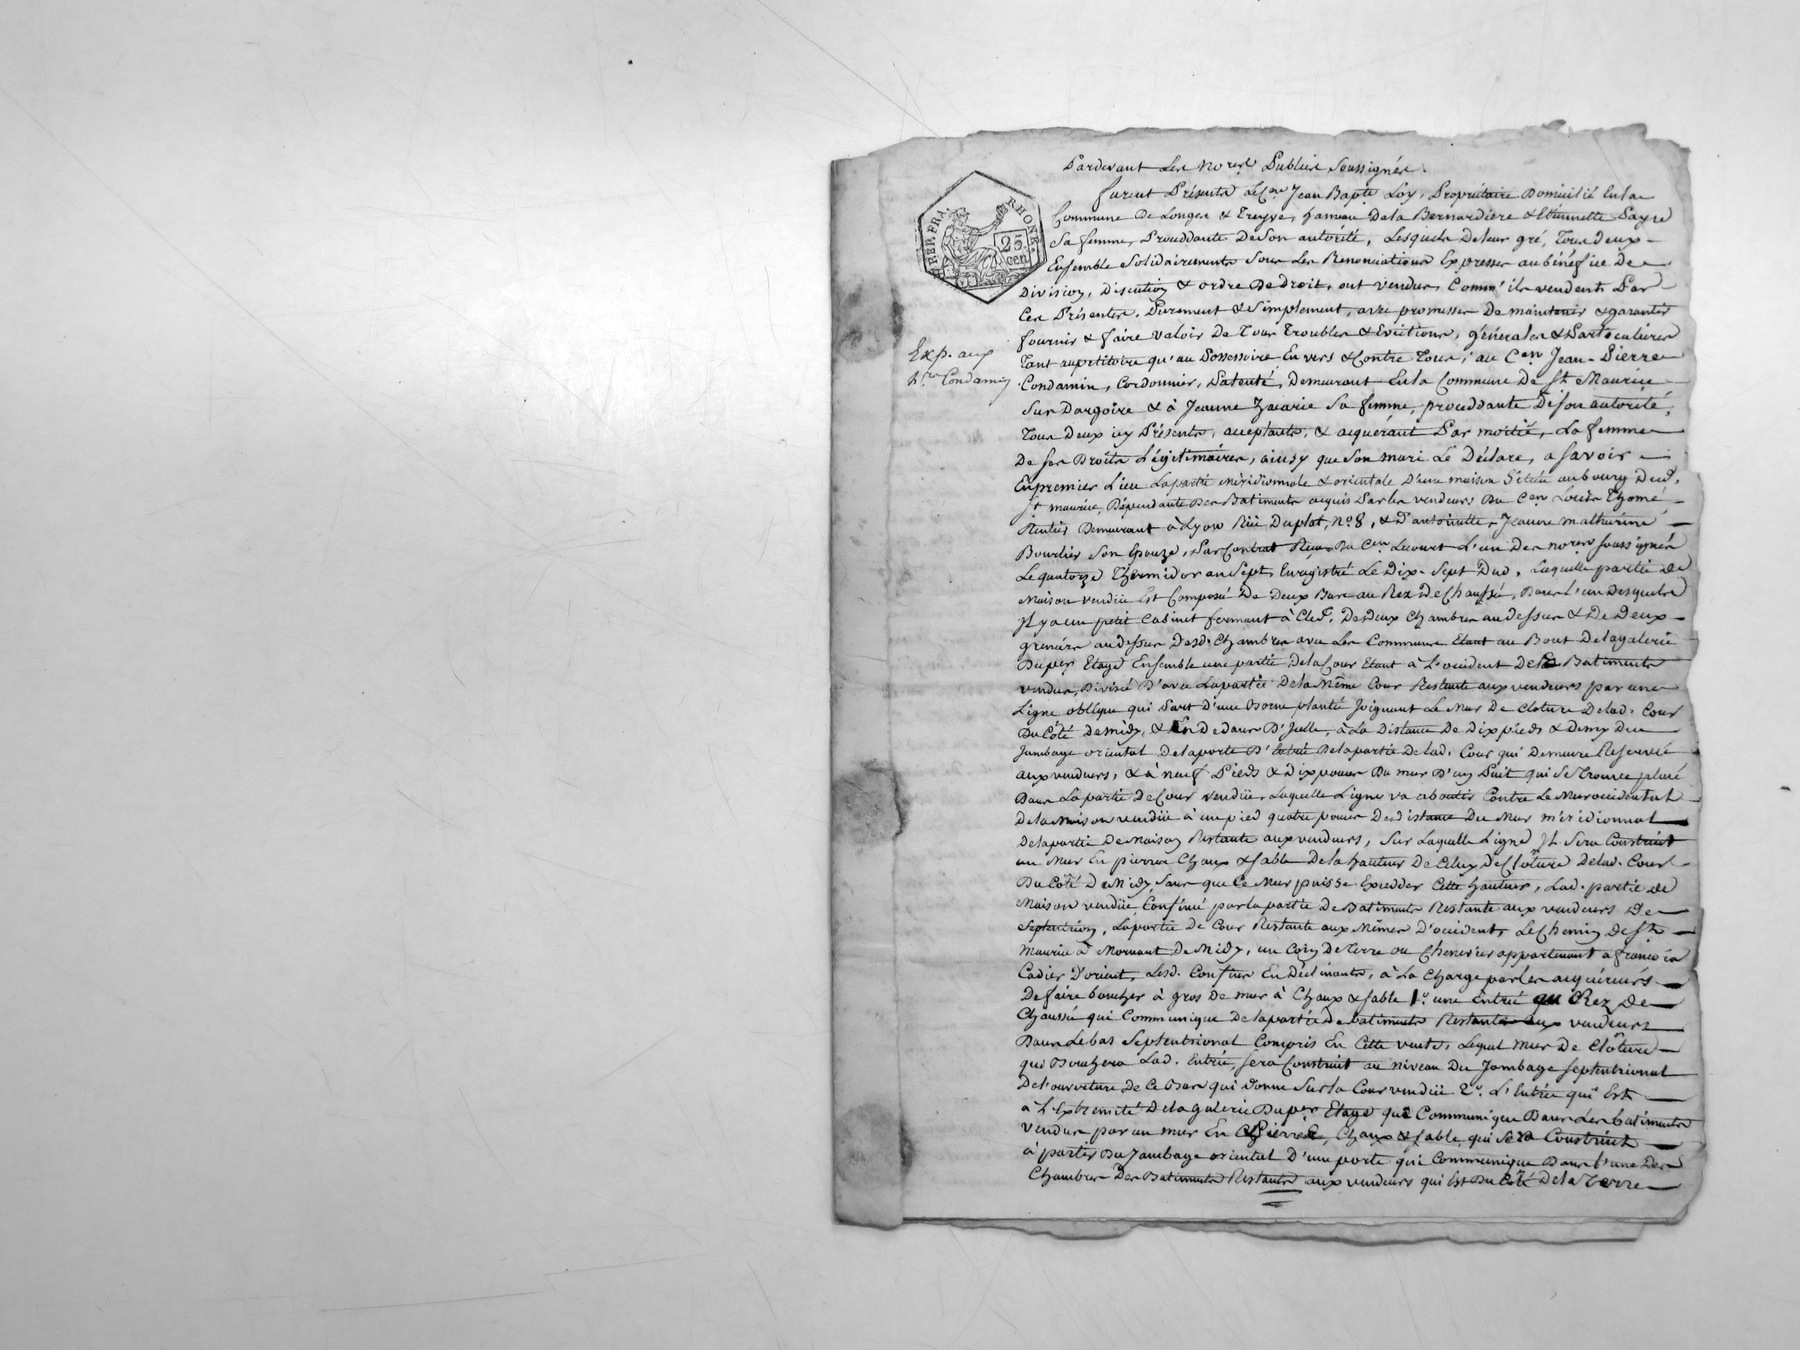 Pardevant Les no.res Publics Soussignés.
furent Présents Le C.en Jean Bap.te Loy, Propriétaire Domicilié En la
Commune De Longes & Treyve, hameau De la Bernardiere & Etiennette Payre
Sa femme, Procédante De Son autorité, Lesquels De leur gré, Tous deux
Ensemble Solidairement Sous Les Renonciations Expresses au bénéfice De
Division, Discution & ordre De Droit, ont vendus, Comm' ils vendent Par
Ces Présentes, Purement & Simplement, avec promesses De maintenir & garantir
fournir & faire valoir De Tous Troubles & Evictions, générales & Particulières
Tant au petitoire qu'au Possessoire, Envers & Contre Tous, au C.en Jean-Pierre
Condamin, Cordonnier, Patenté, Demeurant En la Commune De St Maurice
Sur Dargoire & à Jeanne Zacarie Sa femme, procédante De son autorité,
Tous Deux icy Présents, acceptants, & acquérant Par moitié, La femme
De Ses Droits Légitimaires, ainsy que Son mari Le Déclare, a Savoir
En premier Lieu La partie Méridionnale & orientale D'une maison Située au bourg Dud.
St maurice, Dépendante Des Batiments acquis Par les vendeurs Du C.en Louis Thomé
Rentier Demeurant à Lyon Rüe Duplat, No 8, & D'antoinette-Jeanne mathurine
Bourlier Son Epouze, Par Contrat Reçu Du C.en Lecourt L'un Des no.res soussignés
Le quatorze Thermidor an Sept, Enregistré Le Dix-Sept Dud. Laquelle partie De
Maison vendüe Est Composée De Deux Bas au Rez De Chaussé, Dans l'un Desquels
Il y a un petit Cabinet fermant à Clef, De Deux Chambres au dessus & De Deux
greniers au dessus Desd. Chambres avec Les Commune Etant au Bout De la galerie
Du p.er Etage Ensemble une partie De la Cour Etant à L'occident Des Batiments
vendus, Divisée D'avec La partie De la Même Cour Restante aux vendeurs par une
Ligne oblique qui Part D'une Borne planté Joignant Le Mur De Cloture De lad. Cour
Du Côté De Midy, & En dedans D'Icelle, à La Distance De Dix pieds & Demy Du
Jambage oriental De la porte D'Entrée De la partie De lad. Cour qui Demeure Reservée
aux vendeurs, & à neuf Pieds & Dix pouces Du mur D'un Puit qui Se Trouve placé
Dans La partie De Cour vendüe, Laquelle Ligne va aboutir Contre Le Mur occidental
De la Maison vendüe à un pied quatre pouces De distance Du Mur méridionnal
De la partie De Maison Restante aux vendeurs, Sur Laquelle Ligne Il Sera Construit
un Mur En pierre Chaux & sable De la hauteur De Celuy De Clôture De lad. Cour
Du Côté De Midy, Sans que Ce Mur puisse Excedder Cette hauteur, Lad. partie De
Maison vendüe Confiné par la partie De Batiments Restante aux vendeurs De
Septentrion, La partie De Cour Restante aux Mêmes D'occident, Le Chemin De St
Maurice à Mornant De Midy, un Coin De Terre ou Chenevier appartenant a françois
Cadier D'orient, Lesd. Confins En Déclinants, à La Charge par les acquéreurs
De faire boucher à gros De mur à Chaux & sable 1.o une Entrée au Rez De
Chaussé qui Communique De la partie De batiments Restante aux vendeurs
Dans Le bas Septentrional Compris En Cette vente, Lequel Mur De Clôture
qui Bouchera Lad. Entrée, sera Construit au niveau Du Jambage septentrional
De l'ouverture De Ce Bas qui Donne Sur la Cour vendüe 2.o L'Entrée qui Est
à L'Extremité De la galerie Du p.er Etage qui Communique Dans Les batiments
vendus par un mur En Pierre, Chaux & sable, qui Sera Construit
à partir Du Jambage oriental D'une porte qui Communique Dans l'une Des
Chambres Des Batiments Restants aux vendeurs qui Est Du Côté De la Terre
Exp. aux
Condamin
REP. FRA.
RHONE.
25
cen